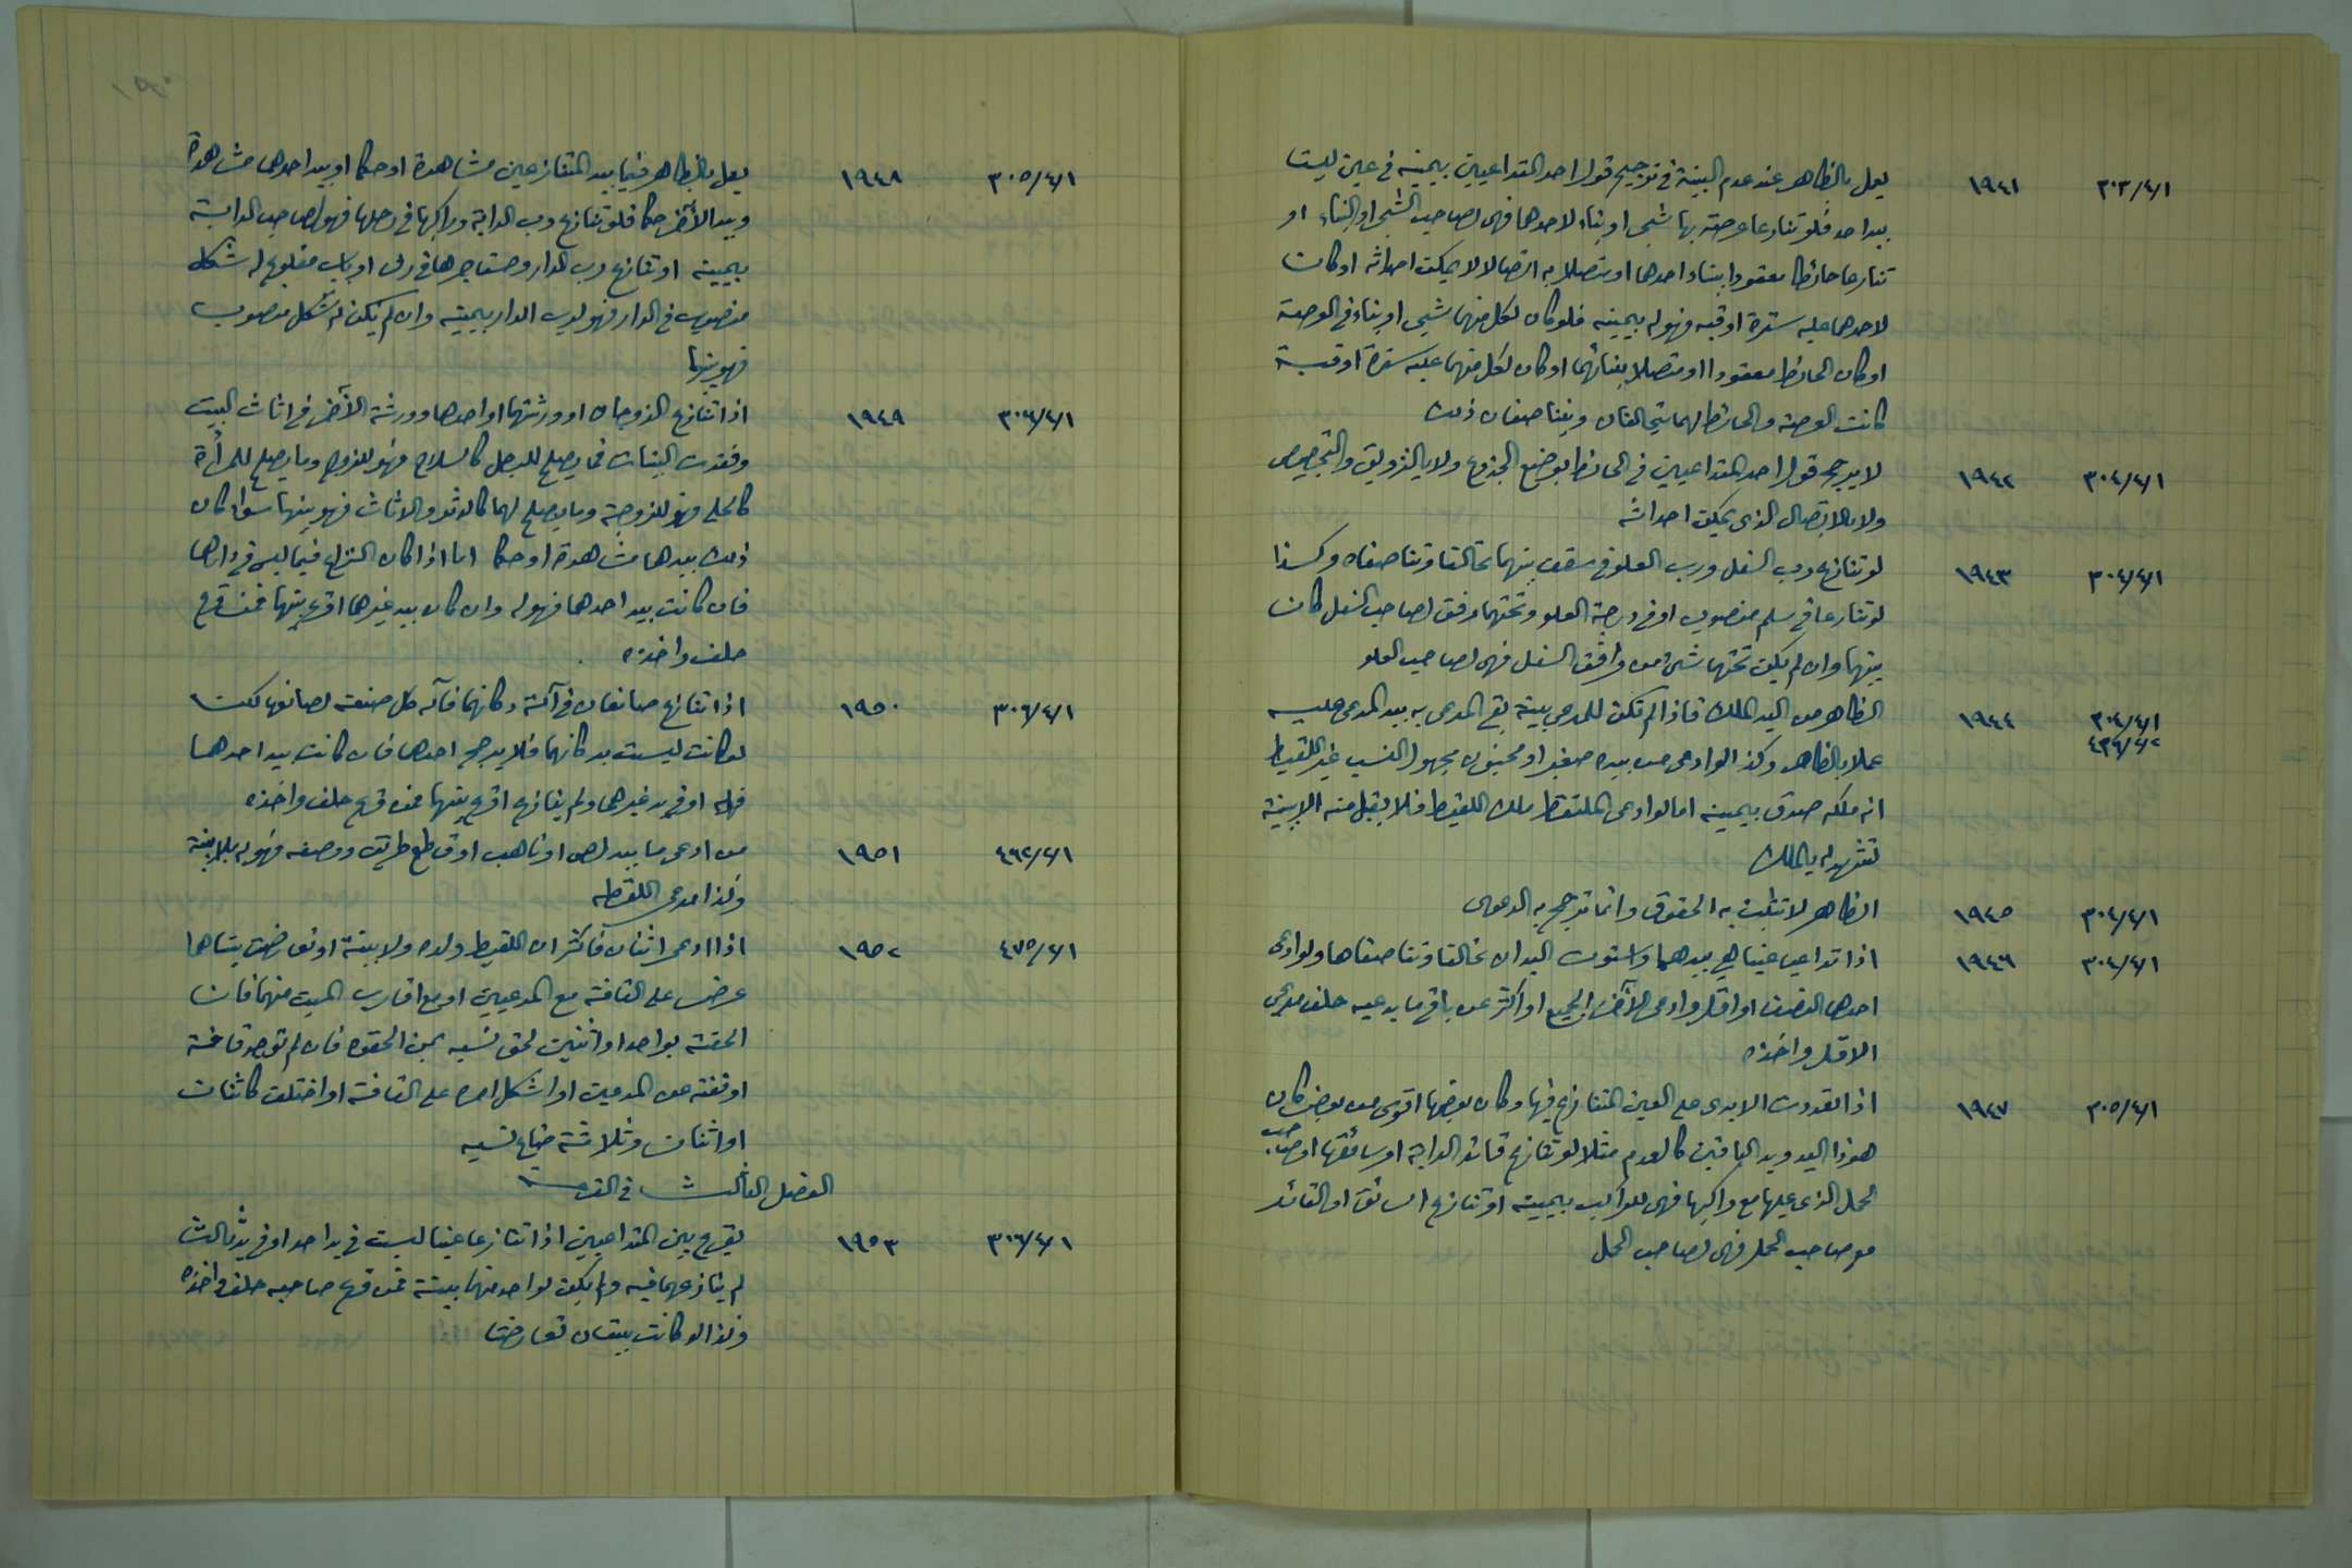 ٣٠٣/٤/١ ١٩٤١ يعمل بالظاهر عند عدم البينة في ترجيح قول احد المتداعيين بيمينه في عين ليست
بيد احد فلو تنازعا عرصة بها شجر او بناء لاحدهما فهي لصاحب الشجر او البناء او
تنازعا حائطا معقودا ببناء احدهما او متصلا به اتصالا لا يمكن احداثه او كان
لاحدهما عليه سترة او قبه فهو له بيمينه فلو كان لكل منهما شجر او بناء في العرصة
او كان الحائط معقودا او متصلا ببنائهما او كان لكل منهما عليه سترة او قبة
كانت العرصة والحائط لهما يتحالفان ويتناصفان ذلك
٣٠٤/٤/١ ١٩٤٢ لا يرجح قول احد المتداعيين في الحائط بوضع الجذوع ولا بالتزويق والتجصيص
ولا بالاتصال الذي يمكن احداثه
٣٠٤/٤/١ ١٩٤٣ لو تنازع رب السفل ورب العلو في سقف بينهما تحالفا وتناصفاه وكذا
لو تنازعا في سلم منصوب او في درجة العلو وتحتها مرفق لصاحب السفل كان
بينهما وان لم يكن تحتها شيء من مرافق السفل فهي لصاحب العلو
٣٠٤/٤/١ ١٩٤٤ الظاهر من اليد الملك فاذا لم تكن للمدعي بينة بقي المدعى به بيد المدعى عليه
٤٣٦/٤/٢ عملا بالظاهر وكذا لو ادعى من بيده صغير او مجنون مجهول النسب غير اللقيط
انه ملكه صدق بيمينه اما لو ادعى الملتقط ملك اللقيط فلا يقبل منه الا ببينة
تشهد له بالملك
٣٠٤/٤/١ ١٩٤٥ الظاهر لا تثبت به الحقوق وانما ترجح به الدعوى
٣٠٤/٤/١ ١٩٤٦ اذا تداعيا عينا هي بيدهما واستوت اليدان تحالفا وتناصفاها ولو ادعى
احدهما النصف او اقل وادعى الآخر الجميع او اكثر من باقي ما يدعيه حلف مدعي
الاقل واخذه
٣٠٥/٤/١ ١٩٤٧ اذا تعددت الايدي على العين المتنازع فيها وكان بعضها اقوى من بعض كان
هو ذا اليد ويد الباقين كالعدم مثلا لو تنازع قائد الدابة او سائقها او صاحب
الحمل الذي عليها مع راكبها فهي للراكب بيمينه او تنازع السائق او القائد
مع صاحب الحمل فهي لصاحب الحمل
٣٠٥/٤/١ ١٩٤٨ يعمل بالظاهر فيما بيد المتنازعين مشاهدة او حكما او بيد احدهما مشاهدة
وبيد الآخر حكما فلو تنازع رب الدابة وراكبها في رحلها فهو لصاحب الدابة
بيمينه او تنازع رب الدار ومستاجرها في رف او باب مقلوع له شكل
منصوب في الدار فهو لرب الدار بيمينه وان لم يكن له شكل منصوب
فهو بينهما
٣٠٦/٤/١ ١٩٤٩ اذا تنازع الزوجان او ورثتهما او احدهما وورثة الآخر في اثاث البيت
وفقدت البينات فما يصلح للرجل كالسلاح فهو للزوج وما يصلح للمرأة
كالحلي فهو للزوجة وما يصلح لهما كالدثر والاثاث فهو بينهما سواء كان
ذلك بيدهما مشاهدة او حكما اما اذا كان النزاع فيما ليس في دارهما
فان كانت بيد احدهما فهو له وان كان بيد غيرهما اقرع بينهما فمن قرع
حلف واخذه
٣٠٦/٤/١ ١٩٥٠ اذا تنازع صانعان في آلة دكانهما فآلة كل صنعة لصانعها لكن
لو كانت ليست بدكانهما فلا يرجح احدهما فان كانت بيد احدهما
فهي له او في يد غيرهما ولم ينازع اقرع بينهما فمن قرع حلف واخذه
٤٦٢/٢/١ ١٩٥١ من ادعى ما بيد لص او ناهب او قاطع طريق ووصفه فهو له بلا بينة
وكذا مدعي اللقطه
٤٧٥/٢/١ ١٩٥٢ اذا ادعى اثنان فأكثر ان اللقيط ولده ولا بينة او تعارضت بيناتهما
عرض على القافة مع المدعيين او مع اقارب الميت منهما فان
الحقته بواحد او اثنين لحق نسبه بمن الحقوه فان لم توجد قافة
او نفته عن المدعيين او اشكل امره على القافة او اختلف قائفان
او اثنان وثلاثة ضاع نسبه
الفصل الثالث في القرعة
٣٠٦/٤/١ ١٩٥٣ يقرع بين المتداعيين اذا تنازعا عينا ليست في يد احد او في يد ثالث
لم ينازعهما فيه ولم يكن لواحد منهما بينة فمن قرع صاحبه حلف واخذه
وكذا لو كانت بينتان تعارضتا